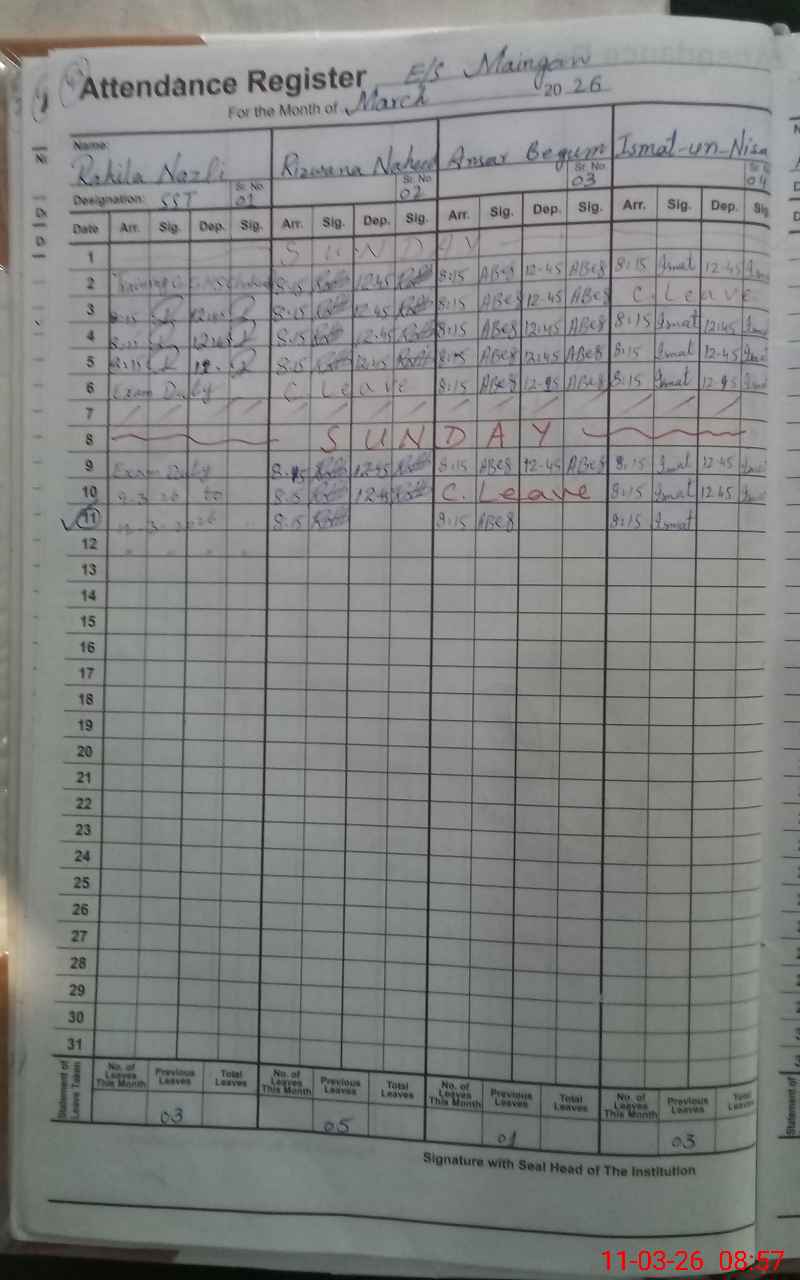 Attendance Register E/S Maingan
For the Month of March 2026
Name: Rahila Nazli Rizwana Naheed Ansar Begum Ismat-un-Nisa
Designation: SST Sr. No. 01 Sr. No. 02 Sr. No. 03 Sr. N 04
Date Arr. Sig. Dep. Sig. Arr. Sig. Dep. Sig. Arr. Sig. Dep. Sig. Arr. Sig. Dep. Sig
1 SUNDAY
2 Training 8:15 12:45 8:15 ABeg 12-45 ABeg 8:15 Ismat 12-45
3 8:15 12:45 8:15 12:45 8:15 ABeg 12-45 ABeg C. Leave
4 8:15 12:45 8:15 12:45 8:15 ABeg 12:45 ABeg 8:15 Ismat 12:45
5 8:15 12. 8:15 12:45 8:15 ABeg 12:45 ABeg 8:15 Ismat 12-45
6 Exam Duty C Leave 8:15 ABeg 12-45 ABeg 8:15 Ismat 12-45
7
8 SUNDAY
9 Exam Duty 8:15 12:45 8:15 ABeg 12-45 ABeg 8:15 Ismat 12-45
10 9.3.26 to 8:15 12:45 C. Leave 8:15 Ismat 12.45
11 8:15 8:15 ABeg 8:15 Ismat
12
13
14
15
16
17
18
19
20
21
22
23
24
25
26
27
28
29
30
31
Statement of Leave Taken No. of Leaves This Month Previous Leaves Total Leaves No. of Leaves This Month Previous Leaves Total Leaves No. of Leaves This Month Previous Leaves Total Leaves No. of Leaves This Month Previous Leaves Total Leaves
03 05 01 03
Signature with Seal Head of The Institution
11-03-26 08:57